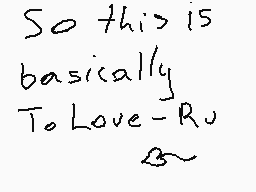 So this is
basically
To Love-Ru